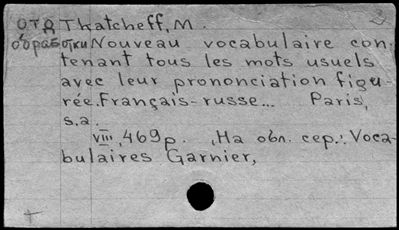 отд Thatcheff, M.
обработки Nouveau vocabulaire con-
tenant tous les mots usuels
avec leur prononciation figu-
rée. Français-russe... Paris,
s.a.
VIII, 469 p. , На обл. сер.: Voca-
bulaires Garnier,